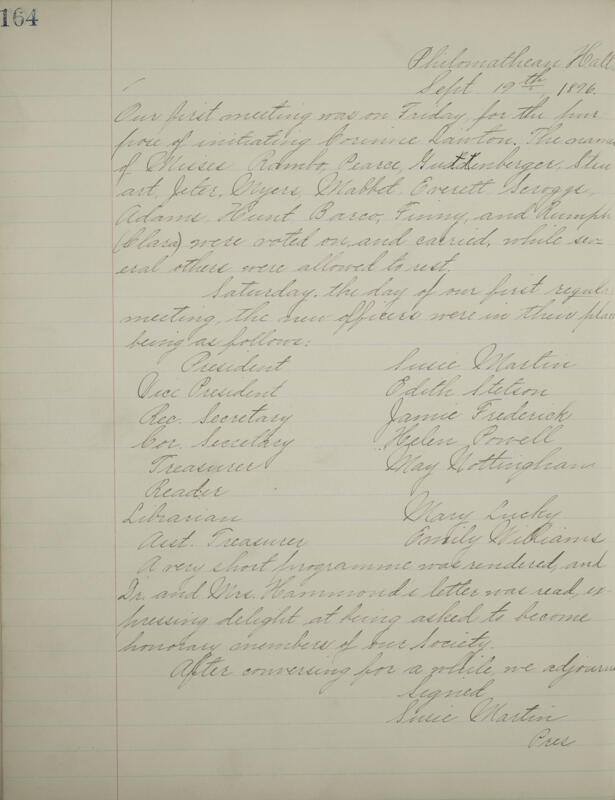 164
Philomathean Hall
Sept. 19th, 1896.
Our first meeting was on Friday, for the pur-
pose of initiating Corinne Lawton. The names
of Misses Rambo, Pearce, Guttenberger, Stu-
art, Jeter, Myers, Mabbet, Everett, Scroggs,
Adams, Hunt, Barco, Finny, and Rumph
(Clara) were voted on and carried, while sev-
eral others were allowed to rest.
Saturday, the day of our first regular
meeting, the new officers were in their place
being as follows:
President Susie Martin
Vice President Edith Stetson
Rec. Secretary Jamie Frederick
Cor. Secretary Helen Powell
Treasurer May Nottingham
Reader
Librarian Mary Lucky
Asst. Treasurer Emily Williams
A very short programme was rendered, and
Dr. and Mrs. Hammond's letter was read, ex-
pressing delight at being asked to become
honorary members of our Society.
After conversing for a while, we adjourn
Signed
Susie Martin
Pres